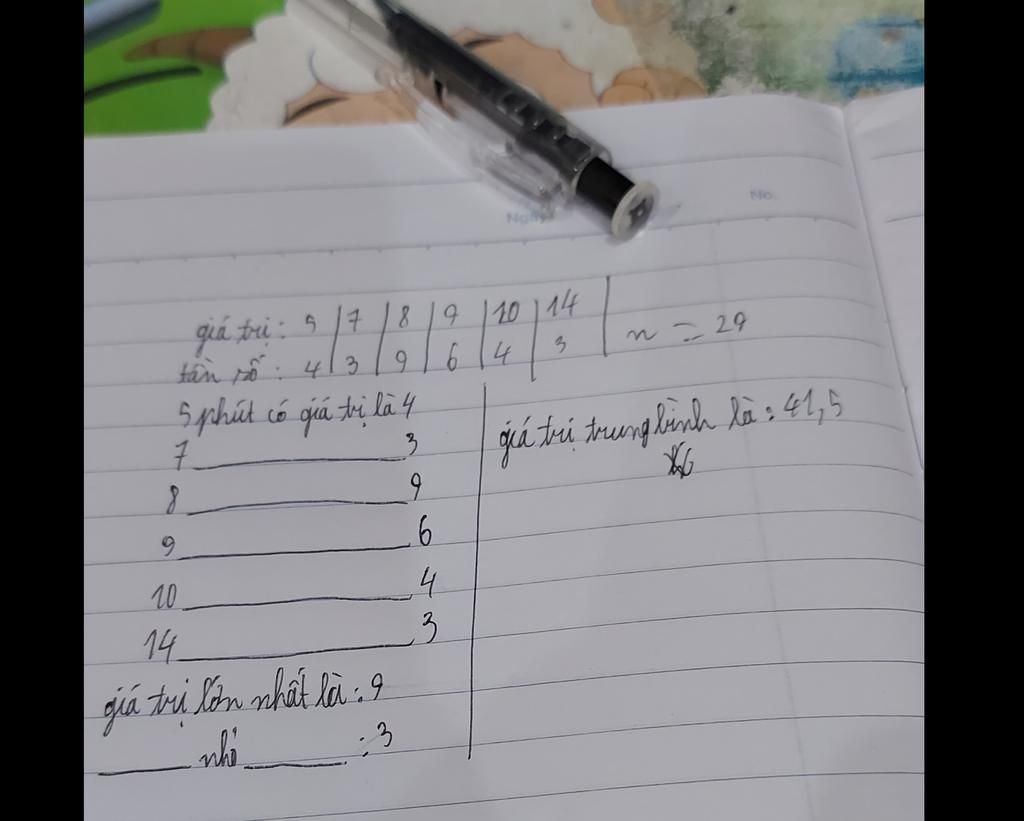 No.
giá trị: 5 | 7 | 8 | 9 | 10 | 14 | n = 29
tần số: 4 | 3 | 9 | 6 | 4 | 3
5 phút có giá trị là 4
7 ________ 3
8 ________ 9
9 ________ 6
10 ________ 4
14 ________ 3
giá trị lớn nhất là: 9
____ nhỏ ____ : 3
giá trị trung bình là: 41,5